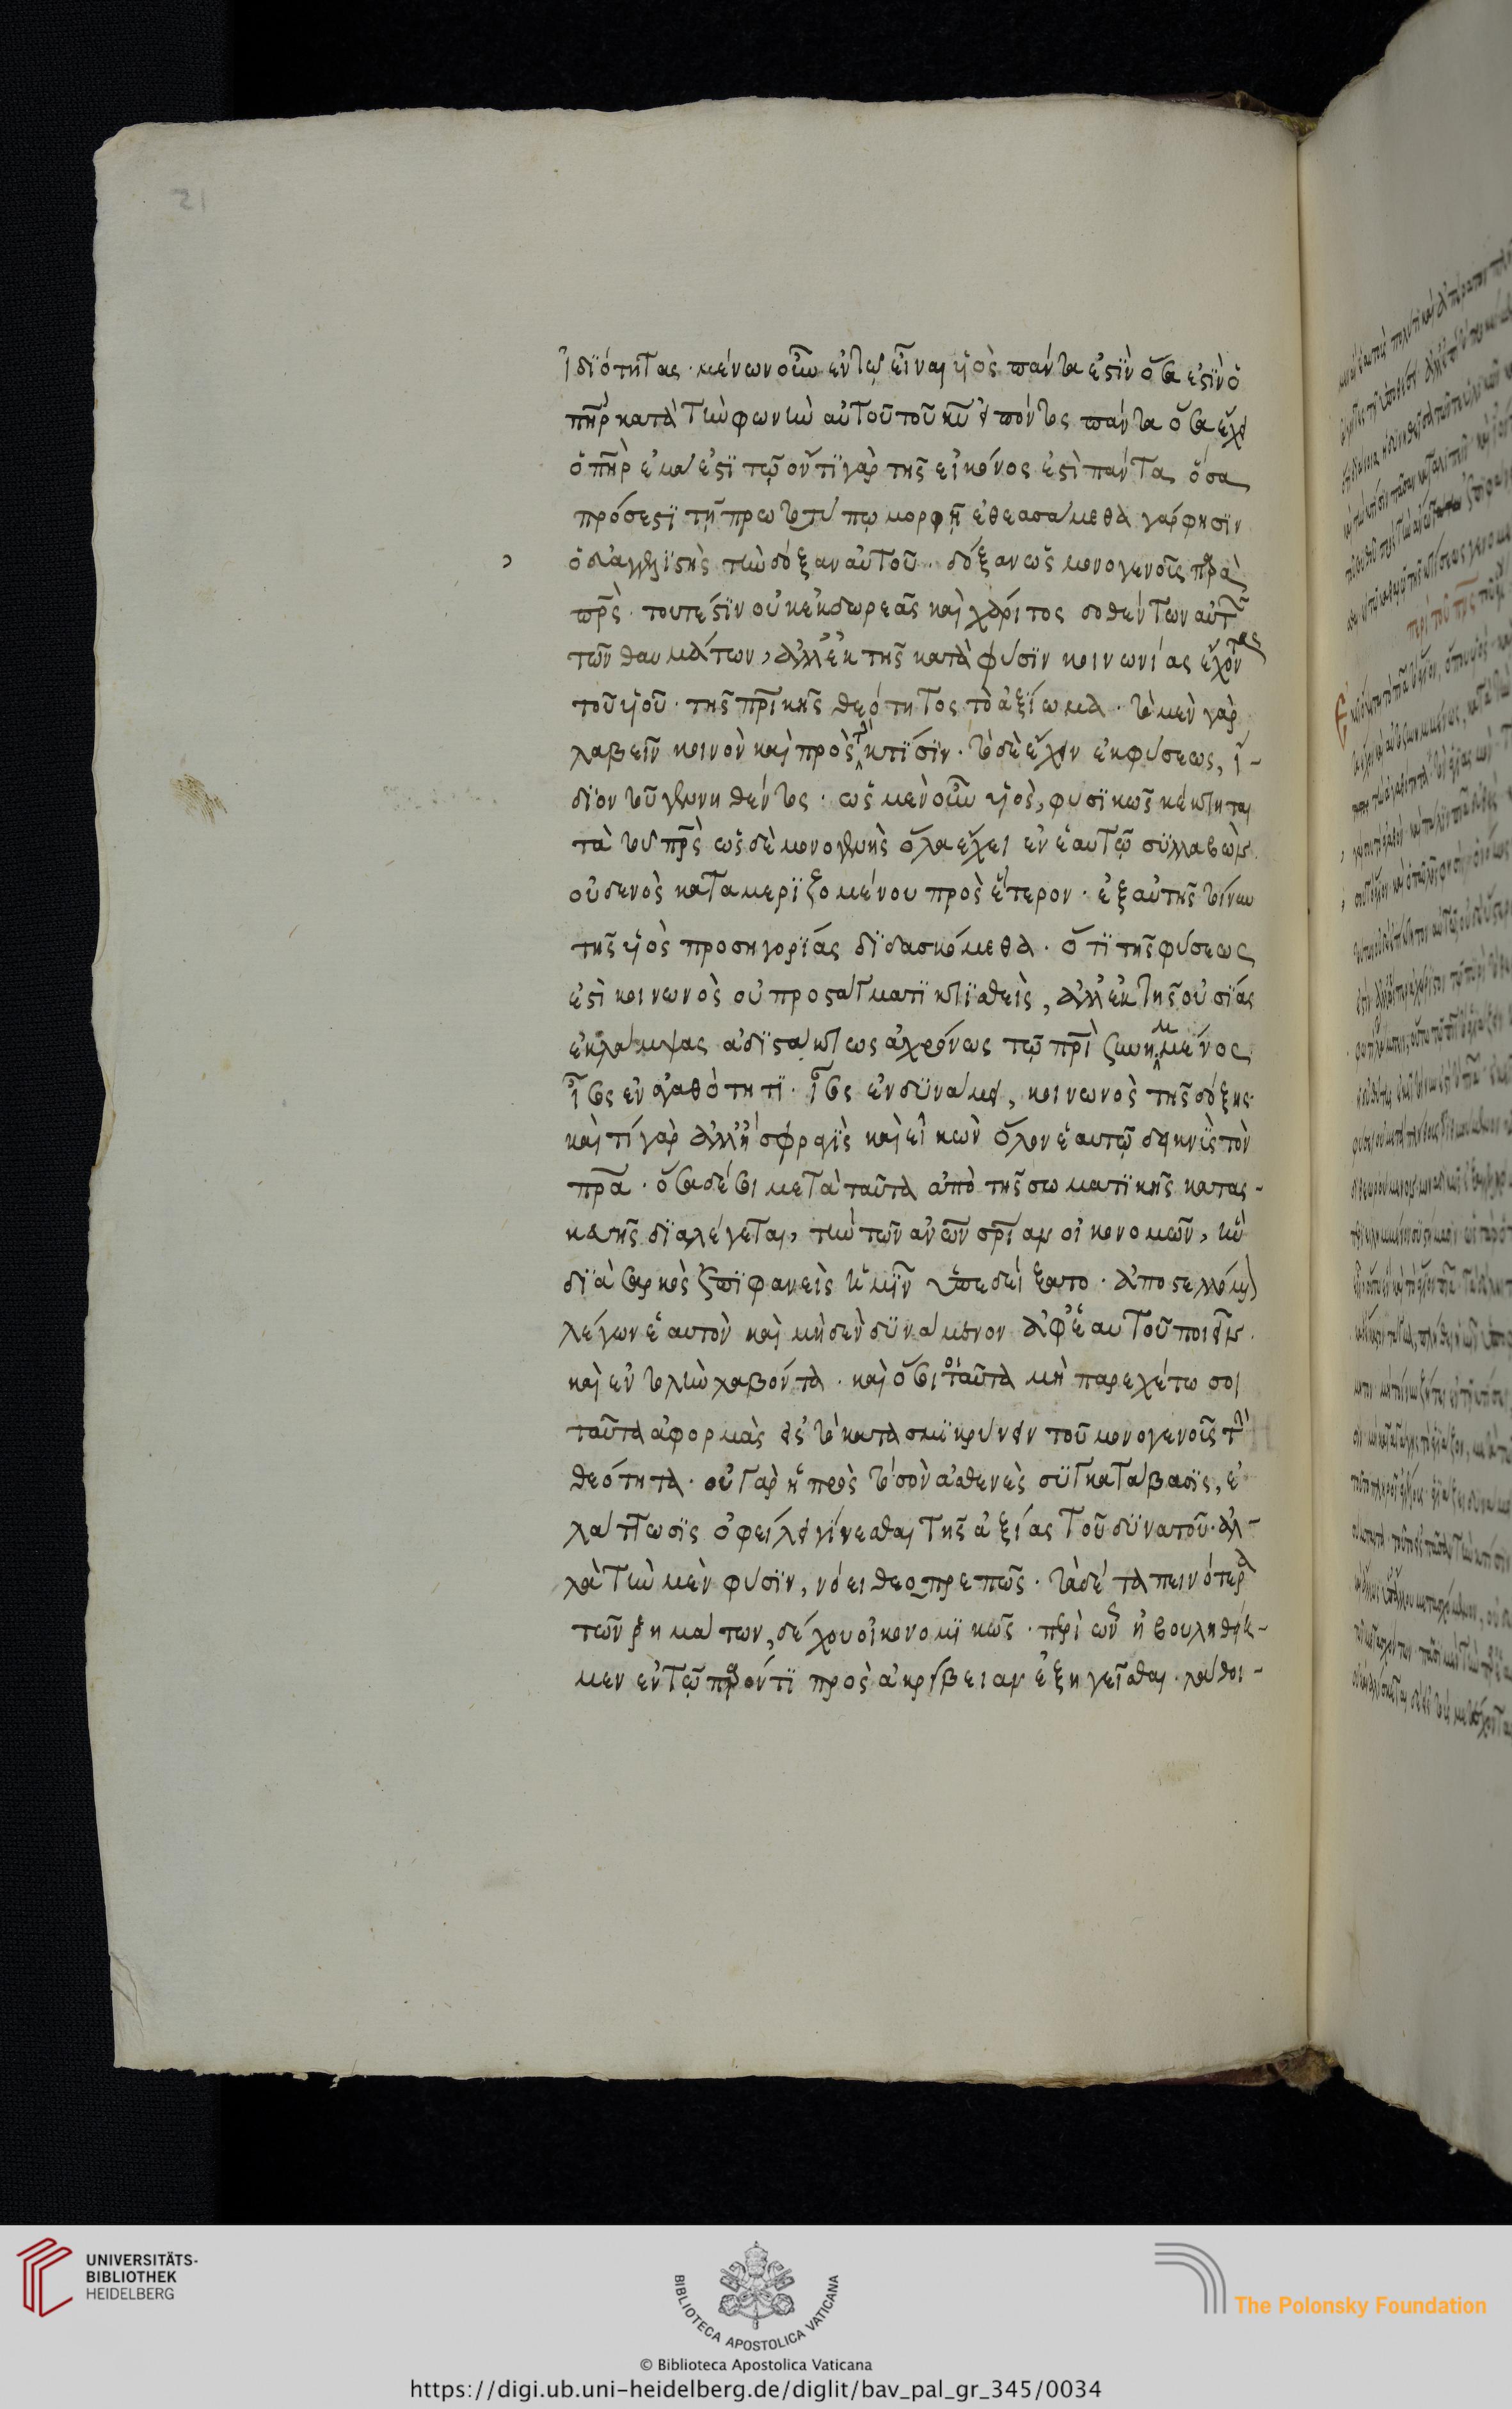 21
ἰδιότητας· μένων οὖν ἐν τῷ εἶναι υἱὸς πάντα ἐστὶν ὅσα ἐστὶν ὁ
πηρ κατὰ τὴν φωνὴν αὐτοῦ τοῦ κυ εἰπόντος πάντα ὅσα ἔχει
ὁ πηρ ἐμά ἐστι τῷ ὄντι γὰρ τῆς εἰκόνος ἐστὶ πάντα, ὅσα
πρόσεστι τῇ πρωτοτύπῳ μορφῇ ἐθεασάμεθα γάρ φησιν
ὁ εὐαγγελιστὴς τὴν δόξαν αὐτοῦ· δόξαν ὡς μονογενοῦς παρὰ
πρς· τουτέστιν οὐκ ἐκ δωρεᾶς καὶ χάριτος δοθέντων αὐτῷ
τῶν θαυμάτων, ἀλλ' ἐκ τῆς κατὰ φύσιν κοινωνίας ἔχοντος
τοῦ υἱοῦ· τῆς πρικῆς θεότητος τὸ ἀξίωμα· τὸ μὲν γὰρ
λαβεῖν κοινὸν καὶ πρὸς τὴν κτίσιν· τὸ δὲ ἔχειν ἐκ φύσεως, ἴ-
διον τοῦ γεννηθέντος· ὡς μὲν οὖν υἱὸς, φυσικῶς κέκτηται
τὰ τοῦ πρς ὡς δὲ μονογενὴς ὅλα ἔχει ἐν ἑαυτῷ συλλαβὼν
οὐδενὸς καταμεριζομένου πρὸς ἕτερον· ἐξ αὐτῆς τοίνυν
τῆς υἱὸς προσηγορίας διδασκόμεθα· ὅτι τῆς φύσεως
ἐστὶ κοινωνὸς οὐ προστάγματι κτισθεὶς, ἀλλ' ἐκ τῆς οὐσίας
ἐκλάμψας ἀδιστάκτως ἀχρόνως τῷ πρὶ συνημμένος
ἴσος ἐν ἀγαθότητι· ἴσος ἐν δυνάμει, κοινωνὸς τῆς δόξης·
καὶ τί γὰρ ἀλλ' ἢ σφραγὶς καὶ εἰκὼν ὅλον ἐν ἑαυτῷ δεικνὺς τὸν
πρα· ὅσα δέ σοι μετὰ ταῦτα ἀπὸ τῆς σωματικῆς κατασ-
κευῆς διαλέγεται, τὴν τῶν ἀνῶν σρίαν οἰκονομῶν, ἣν
διὰ σαρκὸς ἐπιφανεὶς ἡμῖν ὑπεδείξατο· ἀπεσταλμένον
λέγων ἑαυτὸν καὶ μηδὲν δυνάμενον ἀφ' ἑαυτοῦ ποιεῖν·
καὶ ἐντολὴν λαβόντα· καὶ ὅσα τοιαῦτα μὴ παρεχέτω σοι
ταῦτα ἀφορμὰς εἰς τὸ κατασμικρύνειν τοῦ μονογενοῦς τὴν
θεότητα· οὐ γὰρ ἡ πρὸς τὸ σὸν ἀσθενὲς συγκατάβασις, ἐ
λάττωσις ὀφείλει γίνεσθαι τῆς ἀξίας τοῦ δυνατοῦ· ἀλ-
λὰ τὴν μὲν φύσιν, νόει θεοπρεπῶς· τὰ δὲ ταπεινότερα
τῶν ῥημάτων, δέχου οἰκονομικῶς· περὶ ὧν εἰ βουληθείη-
μεν ἐν τῷ παρόντι πρὸς ἀκρίβειαν ἐξηγεῖσθαι· λάθοι-
UNIVERSITÄTS-
BIBLIOTHEK
HEIDELBERG
BIBLIOTECA APOSTOLICA VATICANA
The Polonsky Foundation
© Biblioteca Apostolica Vaticana
https://digi.ub.uni-heidelberg.de/diglit/bav_pal_gr_345/0034